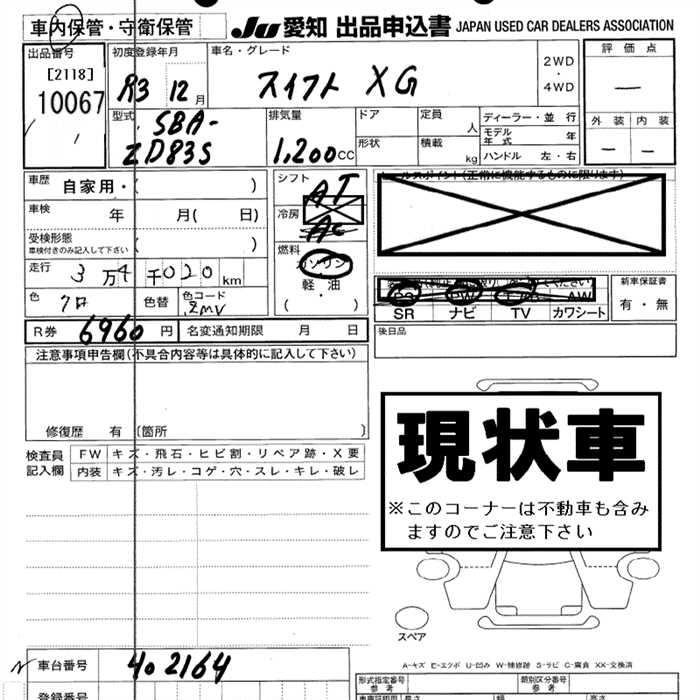 車内保管・守衛保管
JU 愛知 出品申込書 JAPAN USED CAR DEALERS ASSOCIATION
出品番号
[2118]
10067
初度登録年月
R3 12月
車名・グレード
スイフト XG
2WD
・
4WD
評価点
—
外装 内装
— —
型式
5BA-
ZD83S
排気量
1,200cc
ドア
定員
人
形状
積載
kg
ディーラー・並行
モデル年式 年
ハンドル 左・右
車歴 自家用・( )
車検 年 月( 日)
受検形態
車検付きのみ記入して下さい ( )
走行 3万4千020km
色 クロ 色替 色コード ZMV
R券 6960円 名変通知期限 月 日
シフト AT
冷房 AC
燃料
ガソリン
軽・油
( )
セールスポイント(正常に機能するものに限ります)
PS PW エアB AW
SR ナビ TV カワシート
新車保証書
有・無
後日品
注意事項申告欄(不具合内容等は具体的に記入して下さい)
修復歴 有 〔箇所 〕
検査員記入欄
FW キズ・飛石・ヒビ割・リペア跡・X要
内装 キズ・汚レ・コゲ・穴・スレ・キレ・破レ
現状車
※このコーナーは不動車も含み
ますのでご注意下さい
スペア
A-キズ E-エクボ U-凹み W-補修跡 S-サビ C-腐食 XX-交換済
車台番号 402164
登録番号
形式指定番号
参考
類別区分番号
参考
長さ 幅 高さ